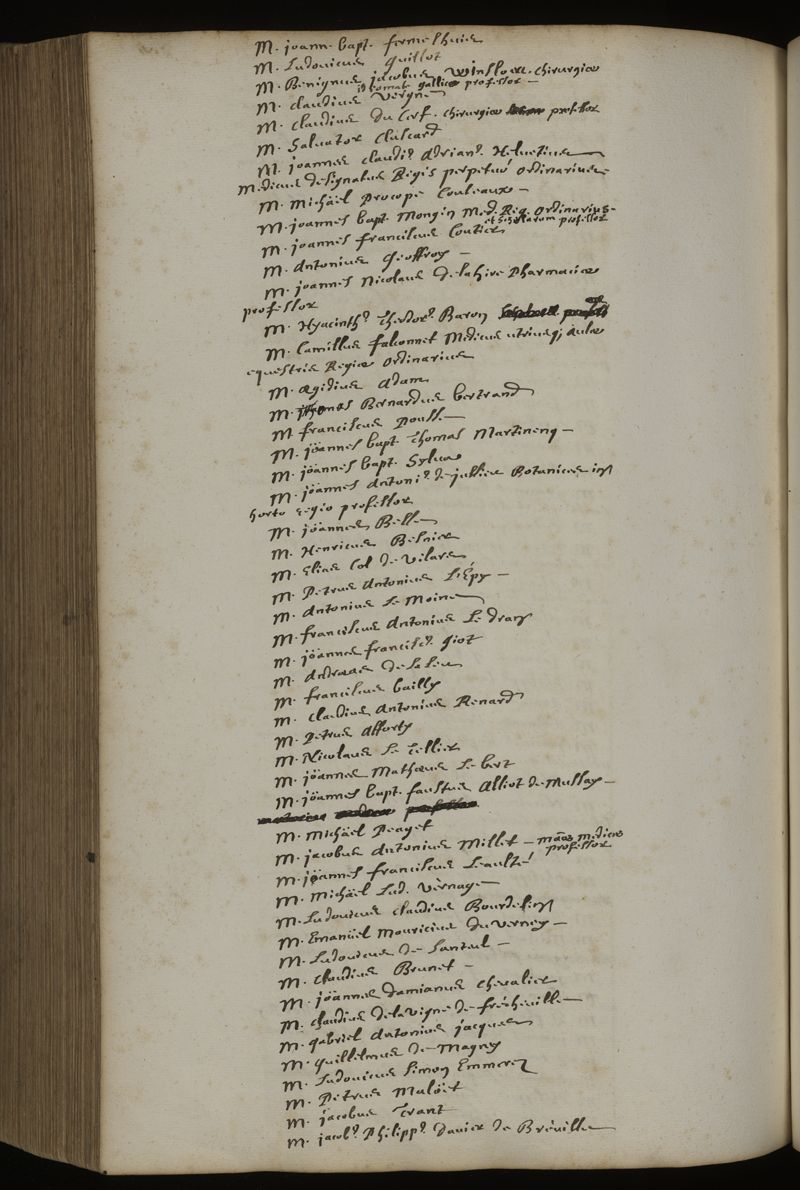 M. joann. bapt. fermelhuis
M. Ludovicus Guillot
M. Benignus jacobus Winslow. chirurgiæ
idiomate gallico professor —
M. claudius Vergne
M. claudius du Cerf. chirurgiæ professor
M. Salvator
M. joannes claudi9 Adrian9 Helvetius
Medicus designatus Regis perpetuo ordinarius
M. Michäel Procope Couteaux —
M. joannes bapt. Mongin Med. Reg. ordinarius
et scholarum professor
M. joannes franciscus Coutier
M. Antonius Geoffroy —
M. joannes Nicolaus de la hire Pharmaciæ
professor
M. Hyacinth9 Theodor9 Baron
M. Camillus falconnet Medicus utriusq; aulæ
equestris Regiæ ordinarius
M. ægidius Adam
M. Thomas Bernardus bertrand
M franciscus Pousse
M. jöannes bapt. Thomas Martineng —
M. jöannes bapt. Sylva
M. jöannes Antoni9 de jussieu Botanices in
horto regio professor
M. jöannes Belle
M. Henricus Besnier
M. Elias Col de Vilars
M. Petrus Antonius L'Épy —
M. Antonius Le Moine
M. franciscus Antonius Le dran
M. jöannes francisc9 Giot
M. Andreas de la leu
M. franciscus bailly
M. claudius Antonius Renard
M. Petrus Afforty
M. Nicolaus Le Tellier
M. jöannes Mathæus Le bert
M. jöannes bapt. faustus Alliot de Mussay —
M. Michäel Peaget
M. jacobus Antonius Millet — medicæ
professor
M. jöannes franciscus Leaulté
M. Michäel Lud. Vernage
M. Ludovicus claudius Bourdelin
M. Emanüel Mauricius du Verney —
M. Ludovicus de Santeul —
M. claudius Brunet —
M. jöannes damianus chevalier
M. claudius de la vigne de frécheville —
M. gabriel Antonius jacques
M. Guillelmus de Magny
M. Ludovicus Simon Emmerez
M. Petrus Maloët
M. jacobus Trant
M. jacob9 Philipp9 davier de Bréville